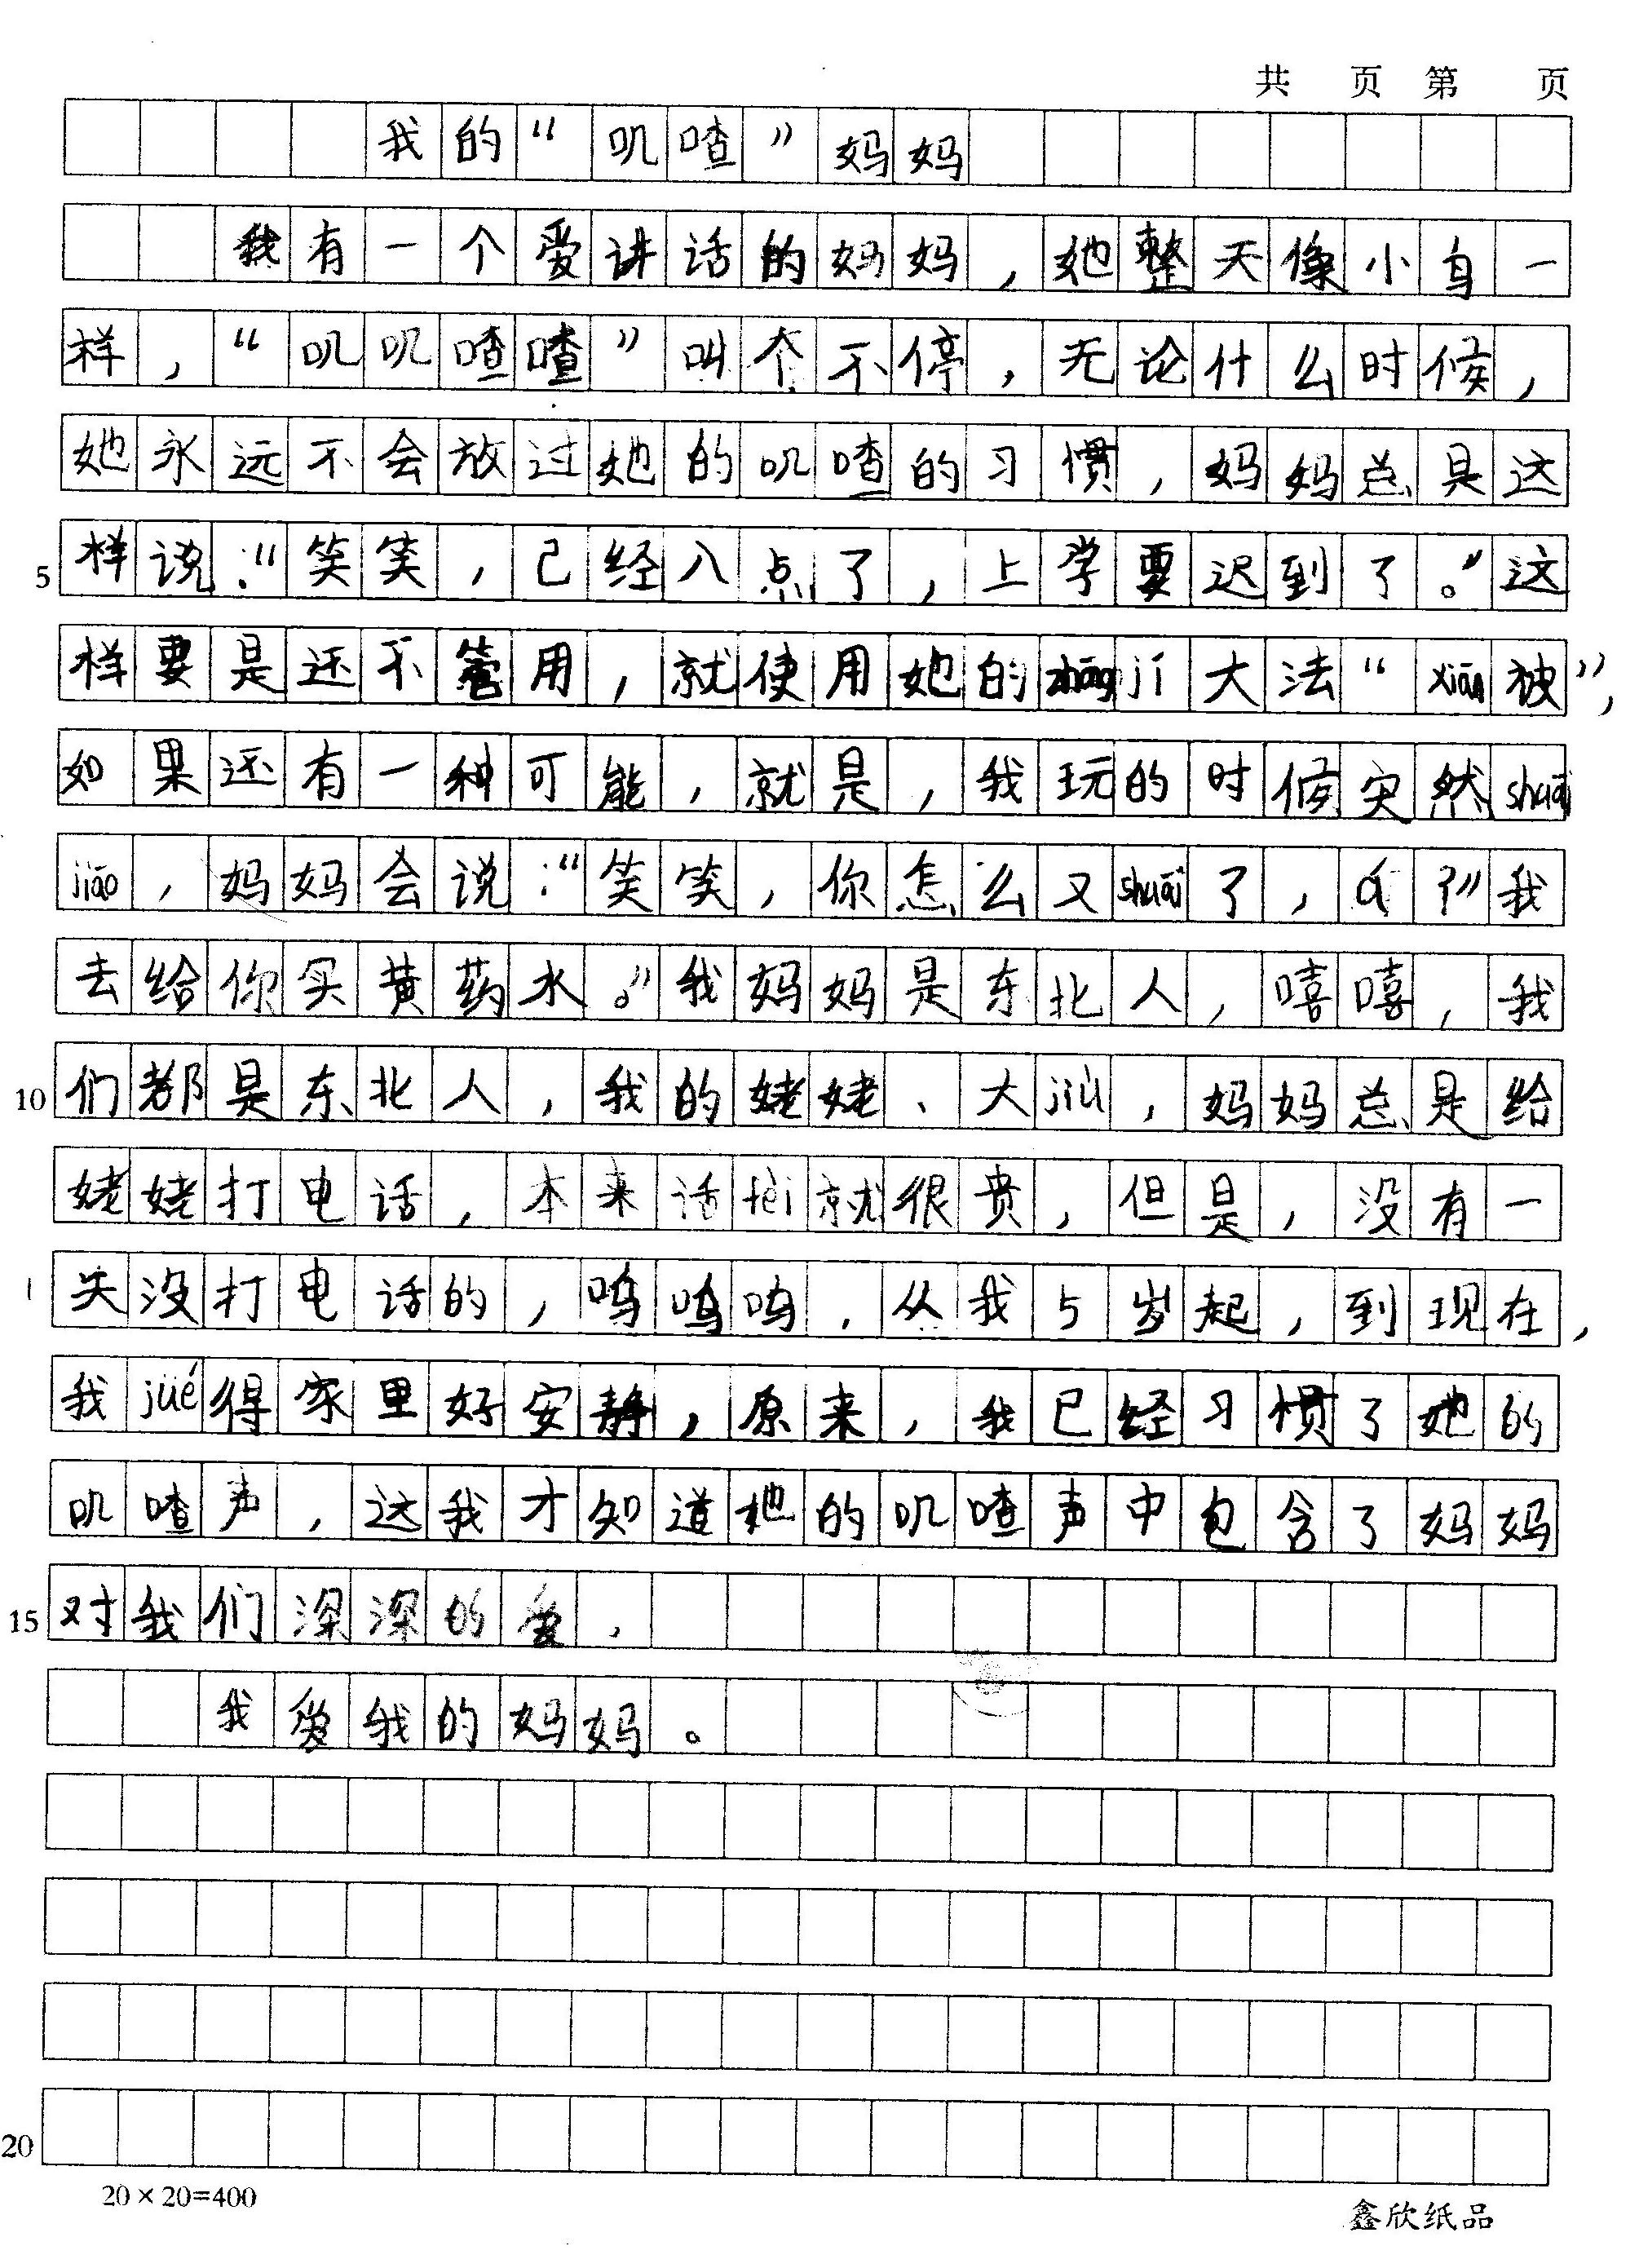 共 页 第 页
我的“叽喳”妈妈
我有一个爱讲话的妈妈，她整天像小鸟一
样，“叽叽喳喳”叫个不停，无论什么时候，
她永远不会放过她的叽喳的习惯，妈妈总是这
5 样说：“笑笑，已经八点了，上学要迟到了。”这
样要是还不管用，就使用她的zhāojí大法“xiān被”，
如果还有一种可能，就是，我玩的时候突然shuāi
jiāo，妈妈会说：“笑笑，你怎么又shuāi了，á？”我
去给你买黄药水。”我妈妈是东北人，嘻嘻，我
10 们都是东北人，我的姥姥、大jiù，妈妈总是给
姥姥打电话，本来话fèi就很贵，但是，没有一
天没打电话的，呜呜呜，从我5岁起，到现在，
我jüé得家里好安静，原来，我已经习惯了她的
叽喳声，这我才知道她的叽喳声中包含了妈妈
15 对我们深深的爱，
我爱我的妈妈。
20
20×20=400 鑫欣纸品